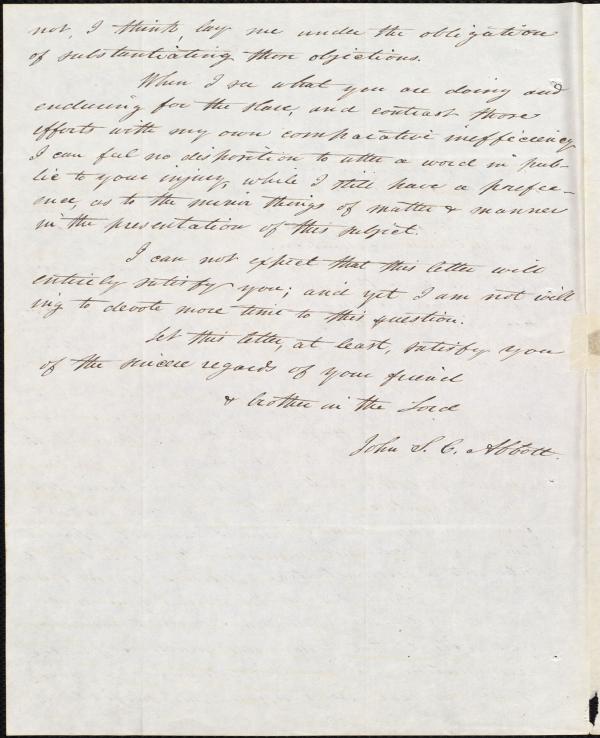 not, I think, lay me under the obligation
of substantiating those objections.
When I see what you are doing and
enduring for the slave, and contrast those
efforts with my own comparative inefficiency
I can feel no disposition to utter a word in pub-
lic to your injury, while I still have a prefer-
ence, as to the minor things of matter & manner
in the presentation of this subject.
I can not expect that this letter will
entirely satisfy you; and yet I am not will
ing to devote more time to this question.
Let this letter, at least, satisfy you
of the sincere regards of your friend
& brother in the Lord
John S. C. Abbott.